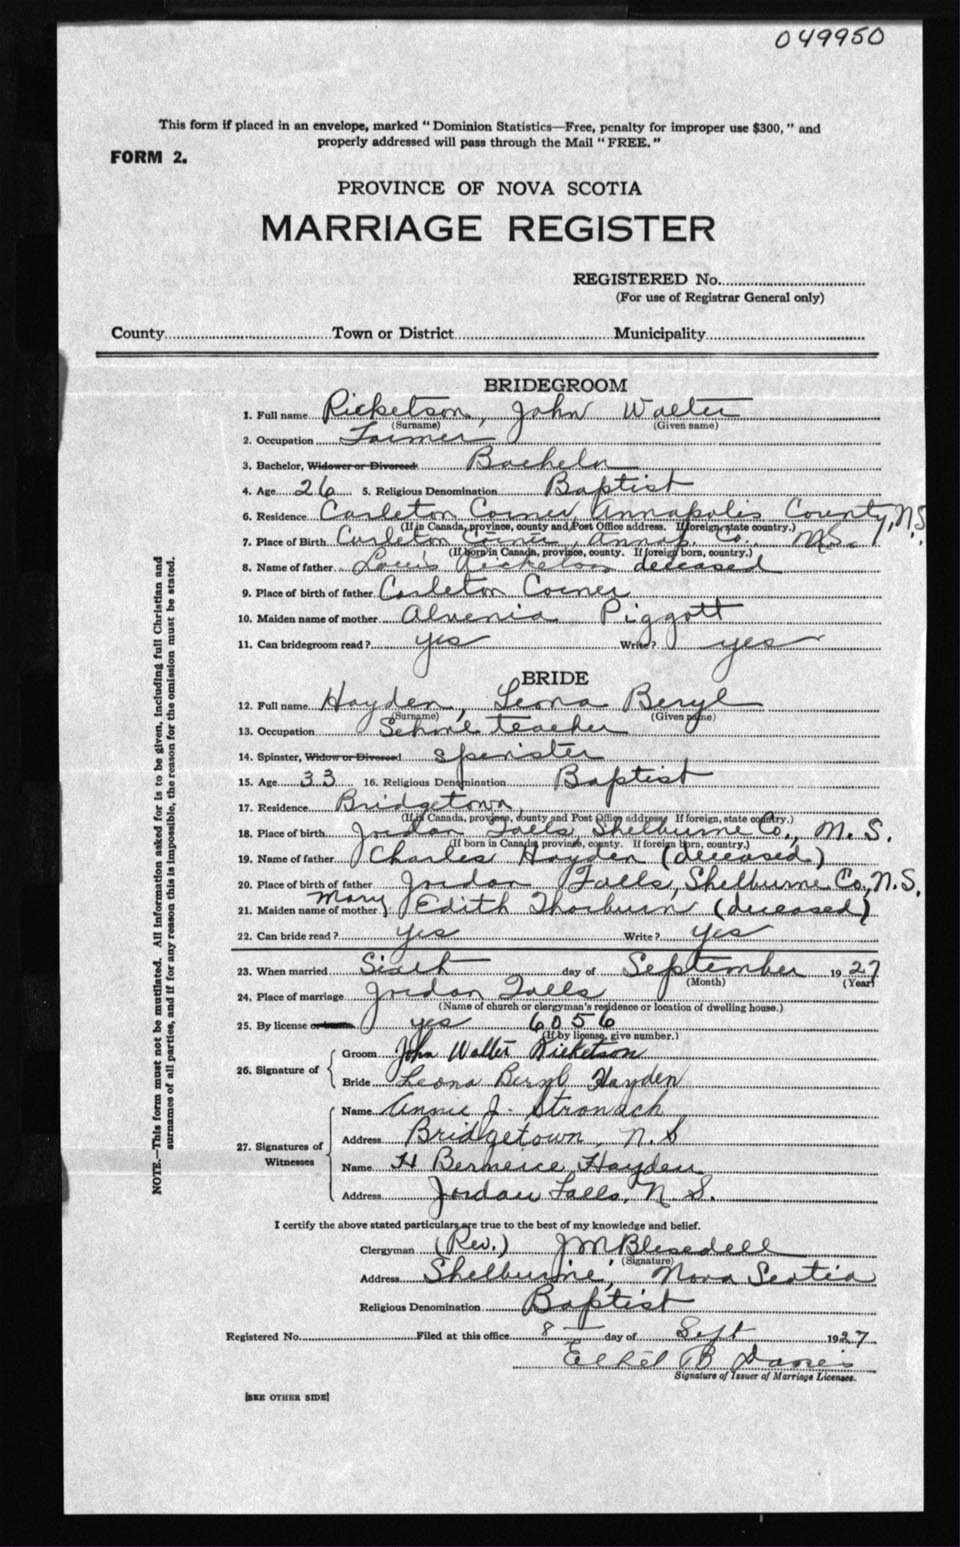 049950
This form if placed in an envelope, marked "Dominion Statistics—Free, penalty for improper use $300," and
properly addressed will pass through the Mail "FREE."
FORM 2.
PROVINCE OF NOVA SCOTIA
MARRIAGE REGISTER
REGISTERED No.
(For use of Registrar General only)
County Town or District Municipality
BRIDEGROOM
1. Full name Ricketson, John Walter
(Surname) (Given name)
2. Occupation Farmer
3. Bachelor, Widower or Divorced Bachelor
4. Age 26 5. Religious Denomination Baptist
6. Residence Carleton Corner Annapolis County, N.S.
(If in Canada, province, county and Post Office address. If foreign, state country.)
7. Place of Birth Carleton Corner, Annap. Co., N.S.
(If born in Canada, province, county. If foreign born, country.)
8. Name of father Louis Ricketson deceased
9. Place of birth of father Carleton Corner
10. Maiden name of mother Alvenia Piggott
11. Can bridegroom read? yes Write? yes
BRIDE
12. Full name Hayden, Leona Beryl
(Surname) (Given name)
13. Occupation School teacher
14. Spinster, Widow or Divorced spinster
15. Age 33 16. Religious Denomination Baptist
17. Residence Bridgetown
(If in Canada, province, county and Post Office address. If foreign, state country.)
18. Place of birth Jordan Falls, Shelburne Co., N.S.
(If born in Canada, province, county. If foreign born, country.)
19. Name of father Charles Hayden (deceased)
20. Place of birth of father Jordan Falls, Shelburne Co., N.S.
21. Maiden name of mother Mary Edith Thorburn (deceased)
22. Can bride read? yes Write? yes
23. When married Sixth day of September 1927
(Month) (Year)
24. Place of marriage Jordan Falls
(Name of church or clergyman's residence or location of dwelling house.)
25. By license or yes 6056
(If by license, give number.)
26. Signature of Groom John Walter Ricketson
Bride Leona Beryl Hayden
27. Signatures of Witnesses Name Annie J. Stronach
Address Bridgetown, N.S
Name H Berneice Hayden
Address Jordan Falls, N.S.
I certify the above stated particulars are true to the best of my knowledge and belief.
Clergyman (Rev.) J M Blesedell
(Signature)
Address Shelburne, Nova Scotia
Religious Denomination Baptist
Registered No. Filed at this office 8 day of Sept 1927
Ethel B Davis
Signature of Issuer of Marriage Licenses.
[SEE OTHER SIDE]
NOTE.—This form must not be mutilated. All information asked for is to be given, including full Christian and
surnames of all parties, and if for any reason this is impossible, the reason for the omission must be stated.